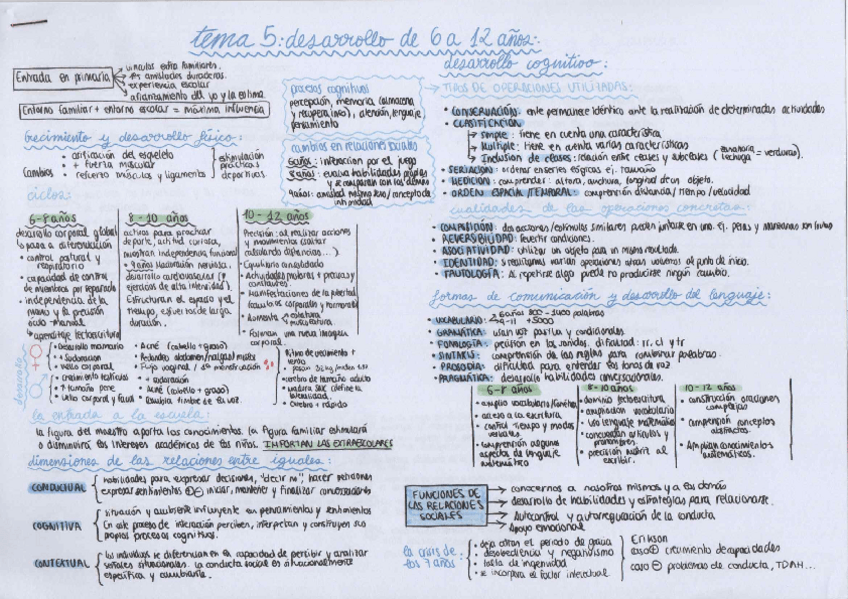 tema 5: desarrollo de 6 a 12 años:
Entrada en primaria
vínculos extra familiares.
las amistades duraderas.
experiencia escolar
afianzamiento del yo y la estima.
Entorno familiar + entorno escolar = máxima influencia
procesos cognitivos
percepción, memoria (almacena
y recupera info), atención, lenguaje,
pensamiento
crecimiento y desarrollo físico:
Cambios
• osificación del esqueleto
• + fuerza muscular
• refuerzo músculos y ligamentos
estimulación
prácticas
deportivas
cambios en relaciones sociales
6años: interacción por el juego
8años: evalua habilidades propias
y se comparan con los demás
9años: amistad mismo sexo/concepto de
intimidad
ciclos:
6-8 años
desarrollo corporal global
lo pasa a diferenciación
• control postural y
respiratorio
• capacidad de control
de miembros por separado
• independencia de la
mano y la precisión
óculo-manual
→ aprendizaje lectoescritura
8-10 años
activos para practicar
deporte, actitud curiosa,
muestran independencia funcional
• 9 años: Maduración nerviosa,
desarrollo cardiovascular (↑
ejercicios de alta intensidad).
Estructuran el espacio y el
tiempo, esfuerzos de larga
duración.
10-12 años
Precisión: al realizar acciones
y movimientos (saltar
calculando distancias...).
• Equilibrio consolidado
• Actividades motoras + precisas y
constantes.
• Manifestaciones de la pubertad
(cambios corporales y hormonales)
• Aumenta
estatura
musculatura
• Forman una nueva imagen
corporal.
desarrollo
♀
• Desarrollo mamario
• Sudoración
• Vello corporal
• Acné (cabello + graso)
• Redondez abdomen/nalgas/muslos
• Flujo vaginal / 1ª menstruación
♂
• Crecimiento testículos
• ↑ tamaño pene
• Vello corporal y facial
• + sudoración
• Acné (cabello + graso)
• Cambia timbre de la voz.
• Ritmo de crecimiento +
lento
• cerebro de tamaño adulto
• Cerebro + rápido
la entrada a la escuela:
la figura del maestro aporta los conocimientos. La figura familiar estimulará
o disminuirá los intereses académicos de los niños. IMPORTAN LAS EXTRAESCOLARES
dimensiones de las relaciones entre iguales:
CONDUCTUAL
habilidades para expresar decisiones, "decir no", hacer peticiones
expresar sentimientos ⊕⊖ iniciar, mantener y finalizar conversaciones
COGNITIVA
situación y ambiente influyente en pensamientos y sentimientos
En este proceso de interacción perciben, interpretan y construyen sus
propios procesos cognitivos.
CONTEXTUAL
los individuos se diferencian en la capacidad de percibir y analizar
señales situacionales. La conducta social es situacionalmente
específica y cambiante.
desarrollo cognitivo:
→ TIPOS DE OPERACIONES UTILIZADAS:
• CONSERVACIÓN: ente permanece idéntico ante la realización de determinadas actividades
• CLASIFICACIÓN
→ Simple: tiene en cuenta una característica
→ Múltiple: tiene en cuenta varias características
→ Inclusión de clases: relación entre clases y subclases (zanahoria, lechuga = verduras).
• SERIACIÓN: ordenar en series lógicas ej. tamaño
• MEDICIÓN: comprender: altura, anchura, longitud de un objeto.
• ORDEN ESPACIAL/TEMPORAL: comprensión distancia/tiempo/velocidad
cualidades de las operaciones concretas:
• COMPOSICIÓN: dos acciones/estímulos similares pueden juntarse en uno. ej. peras y manzanas son frutas
• REVERSIBILIDAD: revertir condiciones.
• ASOCIATIVIDAD: utilizar un objeto para un mismo resultado.
• IDENTIDAD: si realizamos varias operaciones atrás volvemos al punto de inicio.
• TAUTOLOGÍA: Al repetirse algo puede no producirse ningún cambio.
formas de comunicación y desarrollo del lenguaje:
• VOCABULARIO:
9-11 +5000
• GRAMÁTICA: usan voz pasiva y condicionales.
• FONOLOGÍA: precisión en los sonidos. dificultad: rr, cl y tr
• SINTAXIS: comprensión de las reglas para combinar palabras.
• PROSODIA: dificultad para entender los tonos de voz
• PRAGMÁTICA: desarrollo habilidades conversacionales.
• amplio vocabulario/fonético
• acceso a la escritura
• control tiempo y modos
verbales
• comprensión algunos
aspectos de lenguaje
matemático
8-10 años
• dominio lectoescritura
• ampliación vocabulario
• uso lenguaje matemático
• concuerdan artículos y
pronombres.
• precisión motriz al
escribir.
10-12 años
• construcción oraciones
complejas
• comprensión conceptos
abstractos
• Amplían conocimientos
matemáticos.
FUNCIONES DE
LAS RELACIONES
SOCIALES
→ conocernos a nosotros mismos y a los demás
→ desarrollo de habilidades y estrategias para relacionarse.
→ Autocontrol y autorregulación de la conducta
→ Apoyo emocional
la crisis de
los 7 años
• deja atrás el periodo de gracia
• desobediencia y negativismo
• falta de ingenuidad
• se incorpora el factor intelectual
Erikson
caso ⊕ crecimiento de capacidades
caso ⊖ problemas de conducta, TDAH...